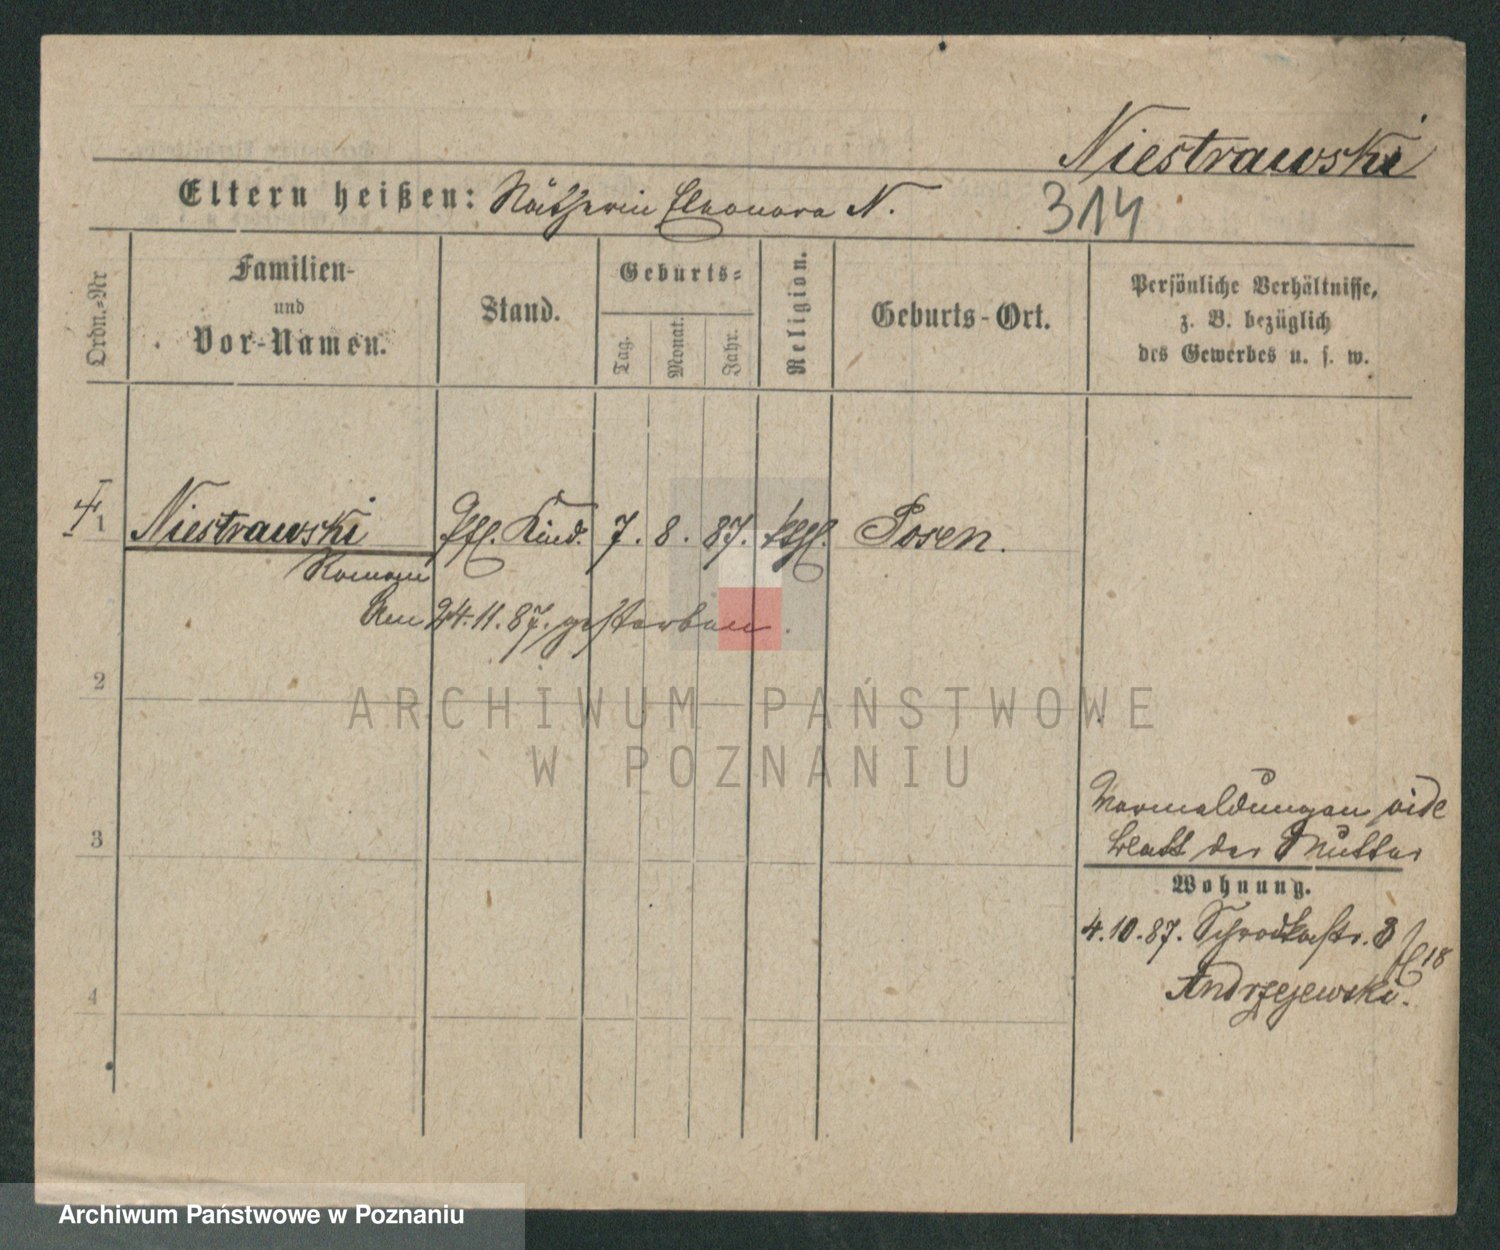 Niestrawski
Eltern heißen: Nätherin Eleonora N.
314
Ordn.-Nr
Familien-
und
Vor-Namen.
Stand.
Geburts-
Tag.
Monat.
Jahr.
Religion.
Geburts-Ort.
Persönliche Verhältnisse,
z. B. bezüglich
des Gewerbes u. s. w.
1 Niestrawski Kind. 7. 8. 87. kthl. Posen.
Roman
Am 24.11.87. gestorben.
2
ARCHIWUM PAŃSTWOWE
W POZNANIU
Vermeldungen vide
3
blatt der Mutter
Wohnung.
4.10.87. Schrodkastr. 3
18
4
Andrzejewski.
Archiwum Państwowe w Poznaniu